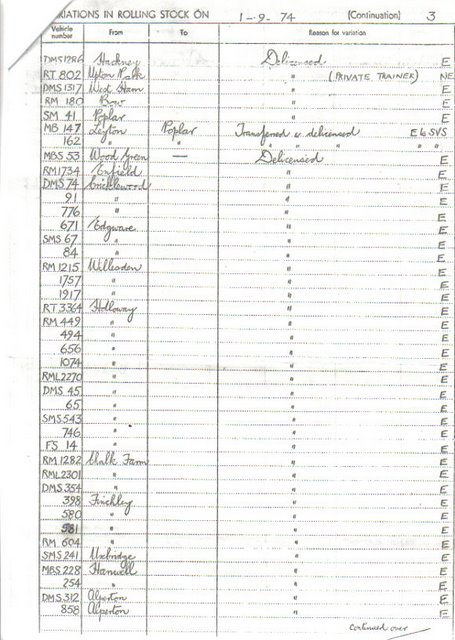 VARIATIONS IN ROLLING STOCK ON 1-9-74 (Continuation) 3
Vehicle number From To Reason for variation
DMS1286 Hackney Delicensed E
RT 802 Upton Park " (PRIVATE TRAINER) NE
DMS1317 West Ham " E
RM 180 Bow " E
SM 41 Poplar " E
MB 147 Leyton Poplar Transferred & delicensed E to SVS
162 " " " " " " "
MBS 53 Wood Green — Delicensed E
RM1734 Enfield " E
DMS 74 Cricklewood " E
91 " " E
776 " " E
671 Edgware " E
SMS 67 " " E
84 " " E
RM 1215 Willesden " E
1757 " " E
1917 " " E
RT 3364 Holloway " E
RM 449 " " E
494 " " E
656 " " E
1074 " " E
RML2270 " " E
DMS 45 " " E
65 " " E
SMS543 " " E
746 " " E
FS 14 " " E
RM 1282 Chalk Farm " E
RML2301 " " E
DMS 354 " " E
398 Finchley " E
580 " " E
581 " " E
RM 604 " " E
SMS 241 Uxbridge " E
MBS 228 Hanwell " E
254 " " E
DMS 312 Alperton " E
858 Alperton " E
continued over